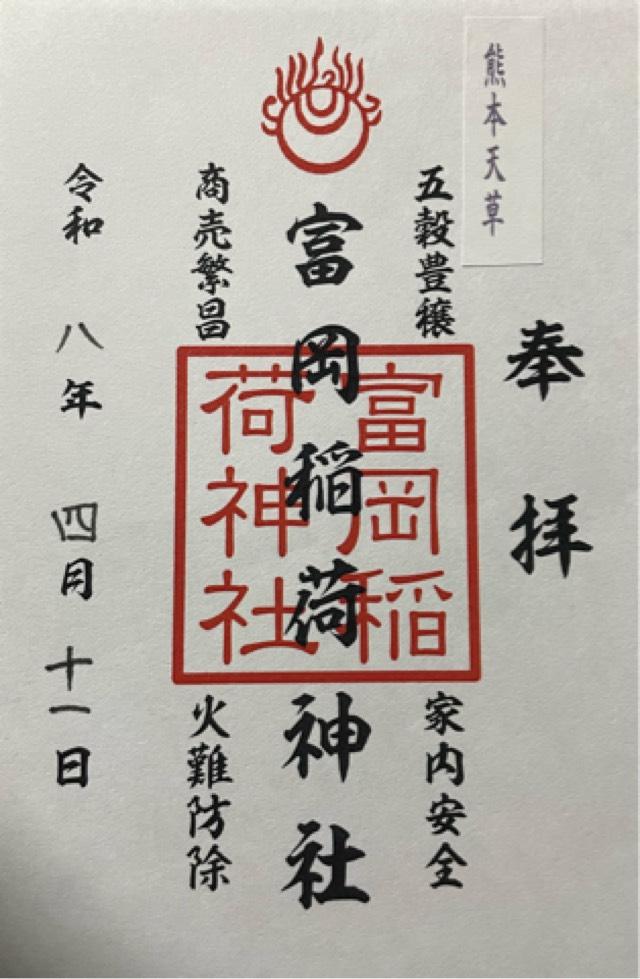 熊本天草
奉拝
五穀豊穣
家内安全
富岡稲荷神社
富岡稲
荷神社
商売繁昌
火難防除
令和八年四月十一日